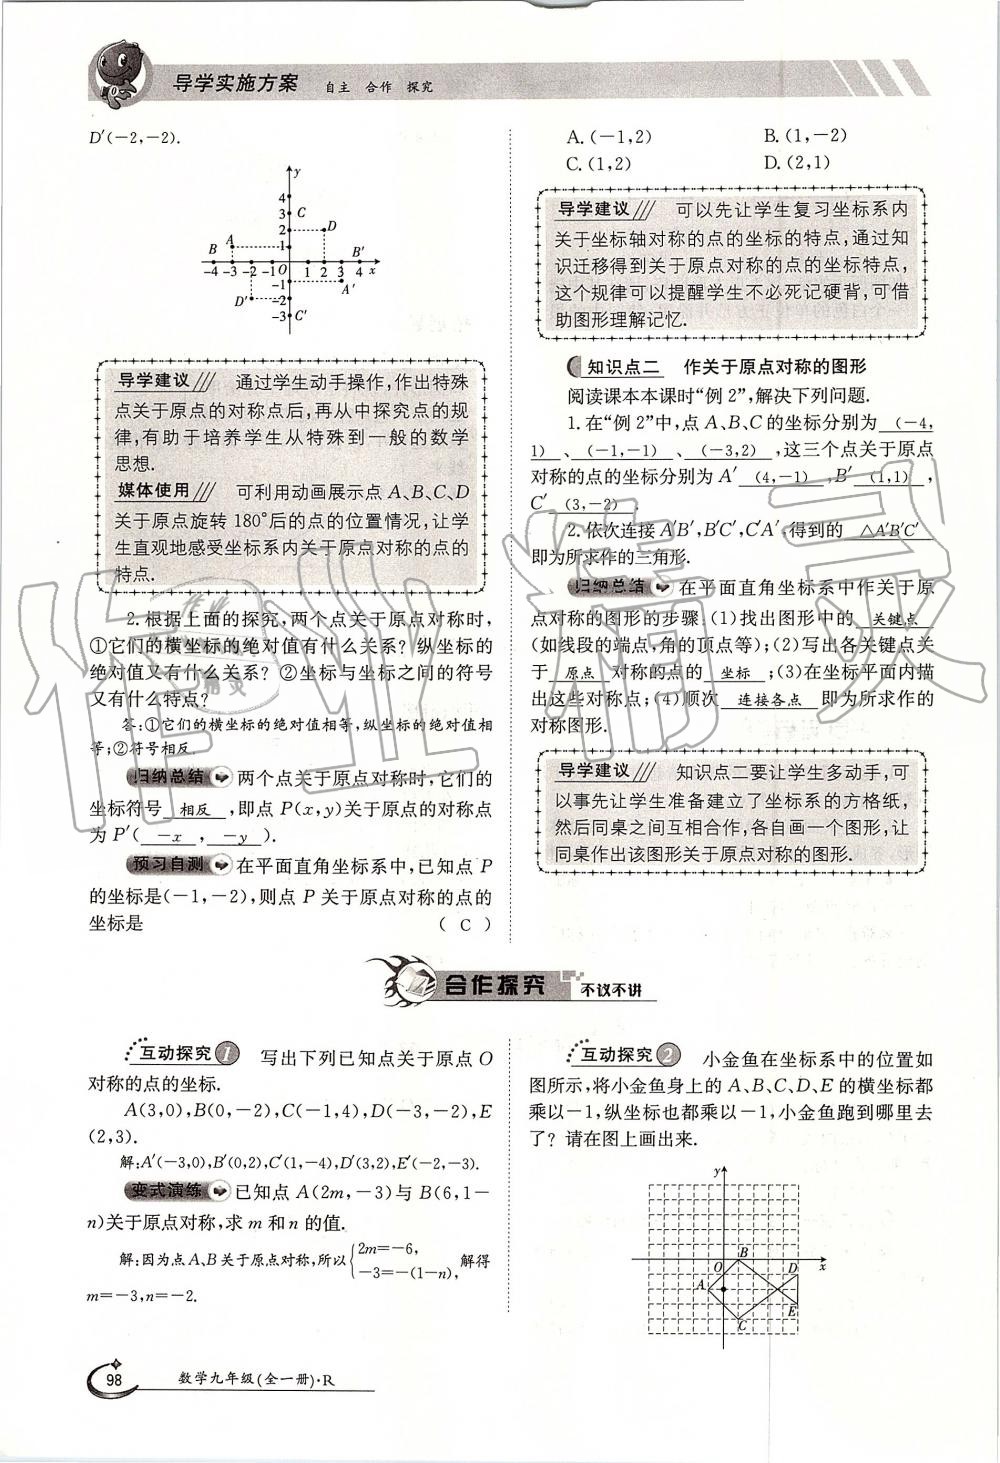 导学实施方案 自主 合作 探究
D′(－2,－2).
y
4
3 C
2 D
A 1
B B′
－4 －3 －2 －1 O 1 2 3 4 x
－1 A′
D′ －2
－3 C′
导学建议 通过学生动手操作,作出特殊
点关于原点的对称点后,再从中探究点的规
律,有助于培养学生从特殊到一般的数学
思想.
媒体使用 可利用动画展示点 A、B、C、D
关于原点旋转 180°后的点的位置情况,让学
生直观地感受坐标系内关于原点对称的点的
特点.
2.根据上面的探究,两个点关于原点对称时,
①它们的横坐标的绝对值有什么关系?纵坐标的
绝对值又有什么关系?②坐标与坐标之间的符号
又有什么特点?
答:①它们的横坐标的绝对值相等,纵坐标的绝对值相
等;②符号相反.
归纳总结 两个点关于原点对称时,它们的
坐标符号 相反 ,即点 P(x,y)关于原点的对称点
为 P′( －x , －y ).
预习自测 在平面直角坐标系中,已知点 P
的坐标是(－1,－2),则点 P 关于原点对称的点的
坐标是 ( C )
A.(－1,2) B.(1,－2)
C.(1,2) D.(2,1)
导学建议 可以先让学生复习坐标系内
关于坐标轴对称的点的坐标的特点,通过知
识迁移得到关于原点对称的点的坐标特点,
这个规律可以提醒学生不必死记硬背,可借
助图形理解记忆.
知识点二 作关于原点对称的图形
阅读课本本课时“例 2”,解决下列问题.
1.在“例 2”中,点 A、B、C 的坐标分别为 (－4,
1) 、 (－1,－1) 、 (－3,2) ,这三个点关于原点
对称的点的坐标分别为 A′ (4,－1) ,B′ (1,1) ,
C′ (3,－2) .
2.依次连接 A′B′,B′C′,C′A′,得到的 △A′B′C′
即为所求作的三角形.
归纳总结 在平面直角坐标系中作关于原
点对称的图形的步骤:(1)找出图形中的 关键点
(如线段的端点,角的顶点等);(2)写出各关键点关
于 原点 对称的点的 坐标 ;(3)在坐标平面内描
出这些对称点;(4)顺次 连接各点 即为所求作的
对称图形.
导学建议 知识点二要让学生多动手,可
以事先让学生准备建立了坐标系的方格纸,
然后同桌之间互相合作,各自画一个图形,让
同桌作出该图形关于原点对称的图形.
合作探究 不议不讲
互动探究 1 写出下列已知点关于原点 O
对称的点的坐标.
A(3,0),B(0,－2),C(－1,4),D(－3,－2),E
(2,3).
解:A′(－3,0),B′(0,2),C′(1,－4),D′(3,2),E′(－2,－3).
变式演练 已知点 A(2m,－3)与 B(6,1－
n)关于原点对称,求 m 和 n 的值.
解:因为点 A、B 关于原点对称,所以 {2m＝－6, －3＝－(1－n), 解得
m＝－3,n＝－2.
互动探究 2 小金鱼在坐标系中的位置如
图所示,将小金鱼身上的 A、B、C、D、E 的横坐标都
乘以－1,纵坐标也都乘以－1,小金鱼跑到哪里去
了?请在图上画出来.
y
O B D x
A E
C
98 数学九年级(全一册)·R
作业精灵